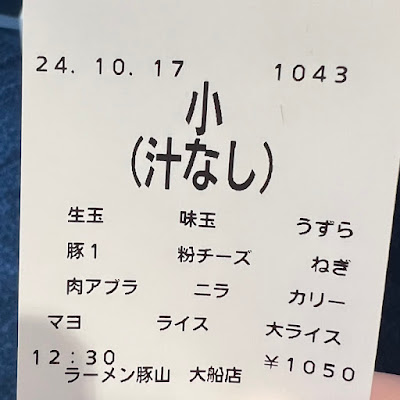 24. 10. 17 1043
小
(汁なし)
生玉 味玉 うずら
豚1 粉チーズ ねぎ
肉アブラ ニラ カリー
マヨ ライス 大ライス
12:30 ¥1050
ラーメン豚山 大船店